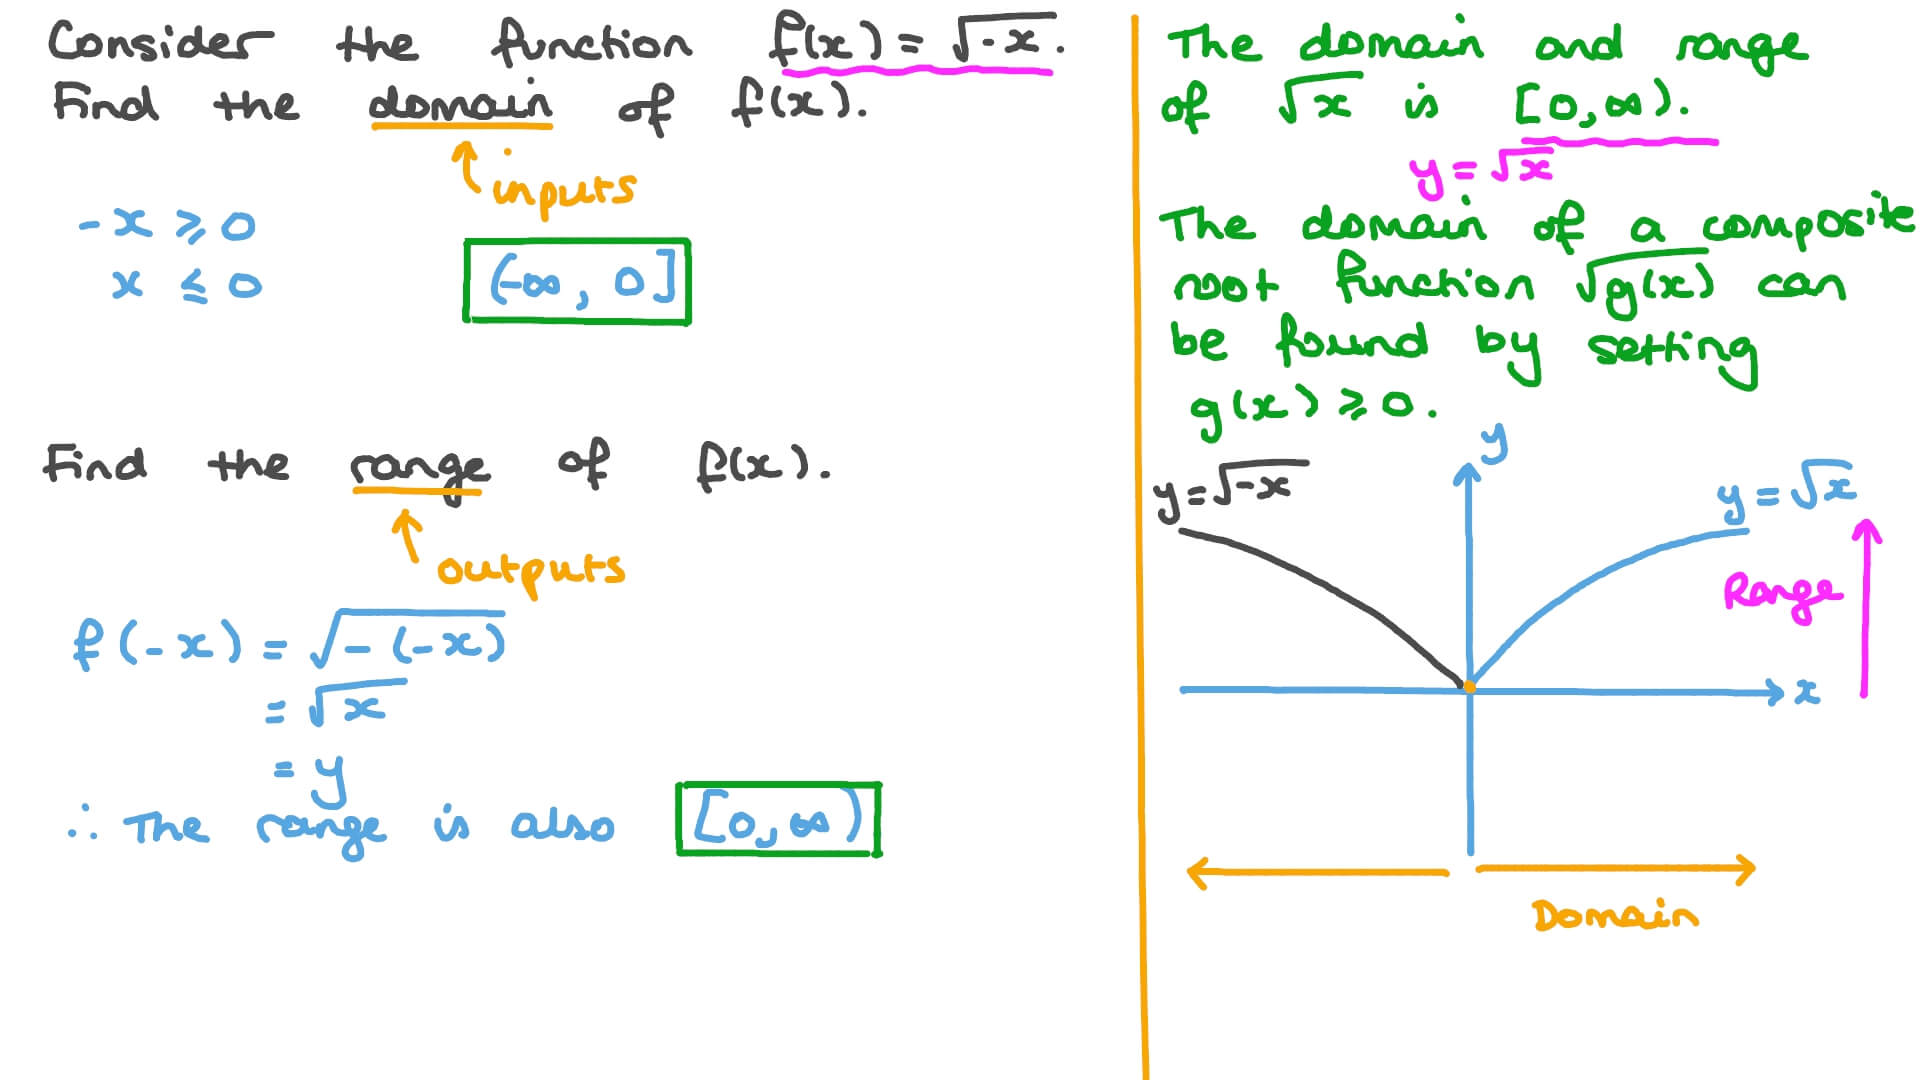 Consider the function f(x) = √-x.
Find the domain of f(x).
inputs
-x ⩾ 0
x ≤ 0
(-∞, 0]
Find the range of f(x).
outputs
f(-x) = √-(-x)
= √x
= y
∴ The range is also [0,∞)
The domain and range
of √x is [0,∞).
y = √x
The domain of a composite
root function √g(x) can
be found by setting
g(x) ⩾ 0.
y
y=√-x
y = √x
Range
x
Domain